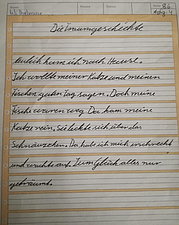 Die Traumgeschichte
Neulich kam ich nach Hause.
Ich wollte meiner Katze und meinen
Fischen guten Tag sagen. Doch meine
Fische waren weg. Da kam meine
Katze rein. Sie leckte sich über das
Schnäuzchen. Da hab ich mich erschreckt
und wachte auf. Zum Glück alles nur
geträumt.